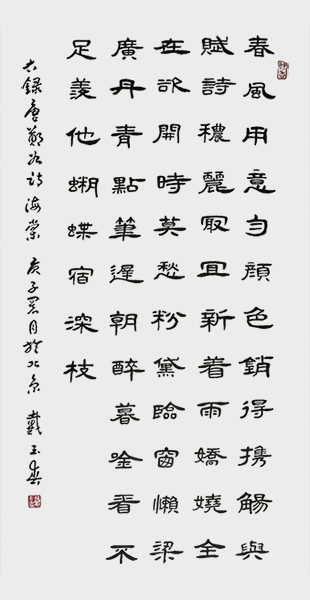 春風用意勻顔色銷得携觴與
賦詩穠麗冣宜新着雨嬌嬈全
在欲開時莫愁粉黛臨窗懶梁
廣丹青點筆遲朝醉暮吟看不
足羨他蝴蝶宿深枝
右錄唐鄭谷詩海棠 庚子閏月於北京 戴玉